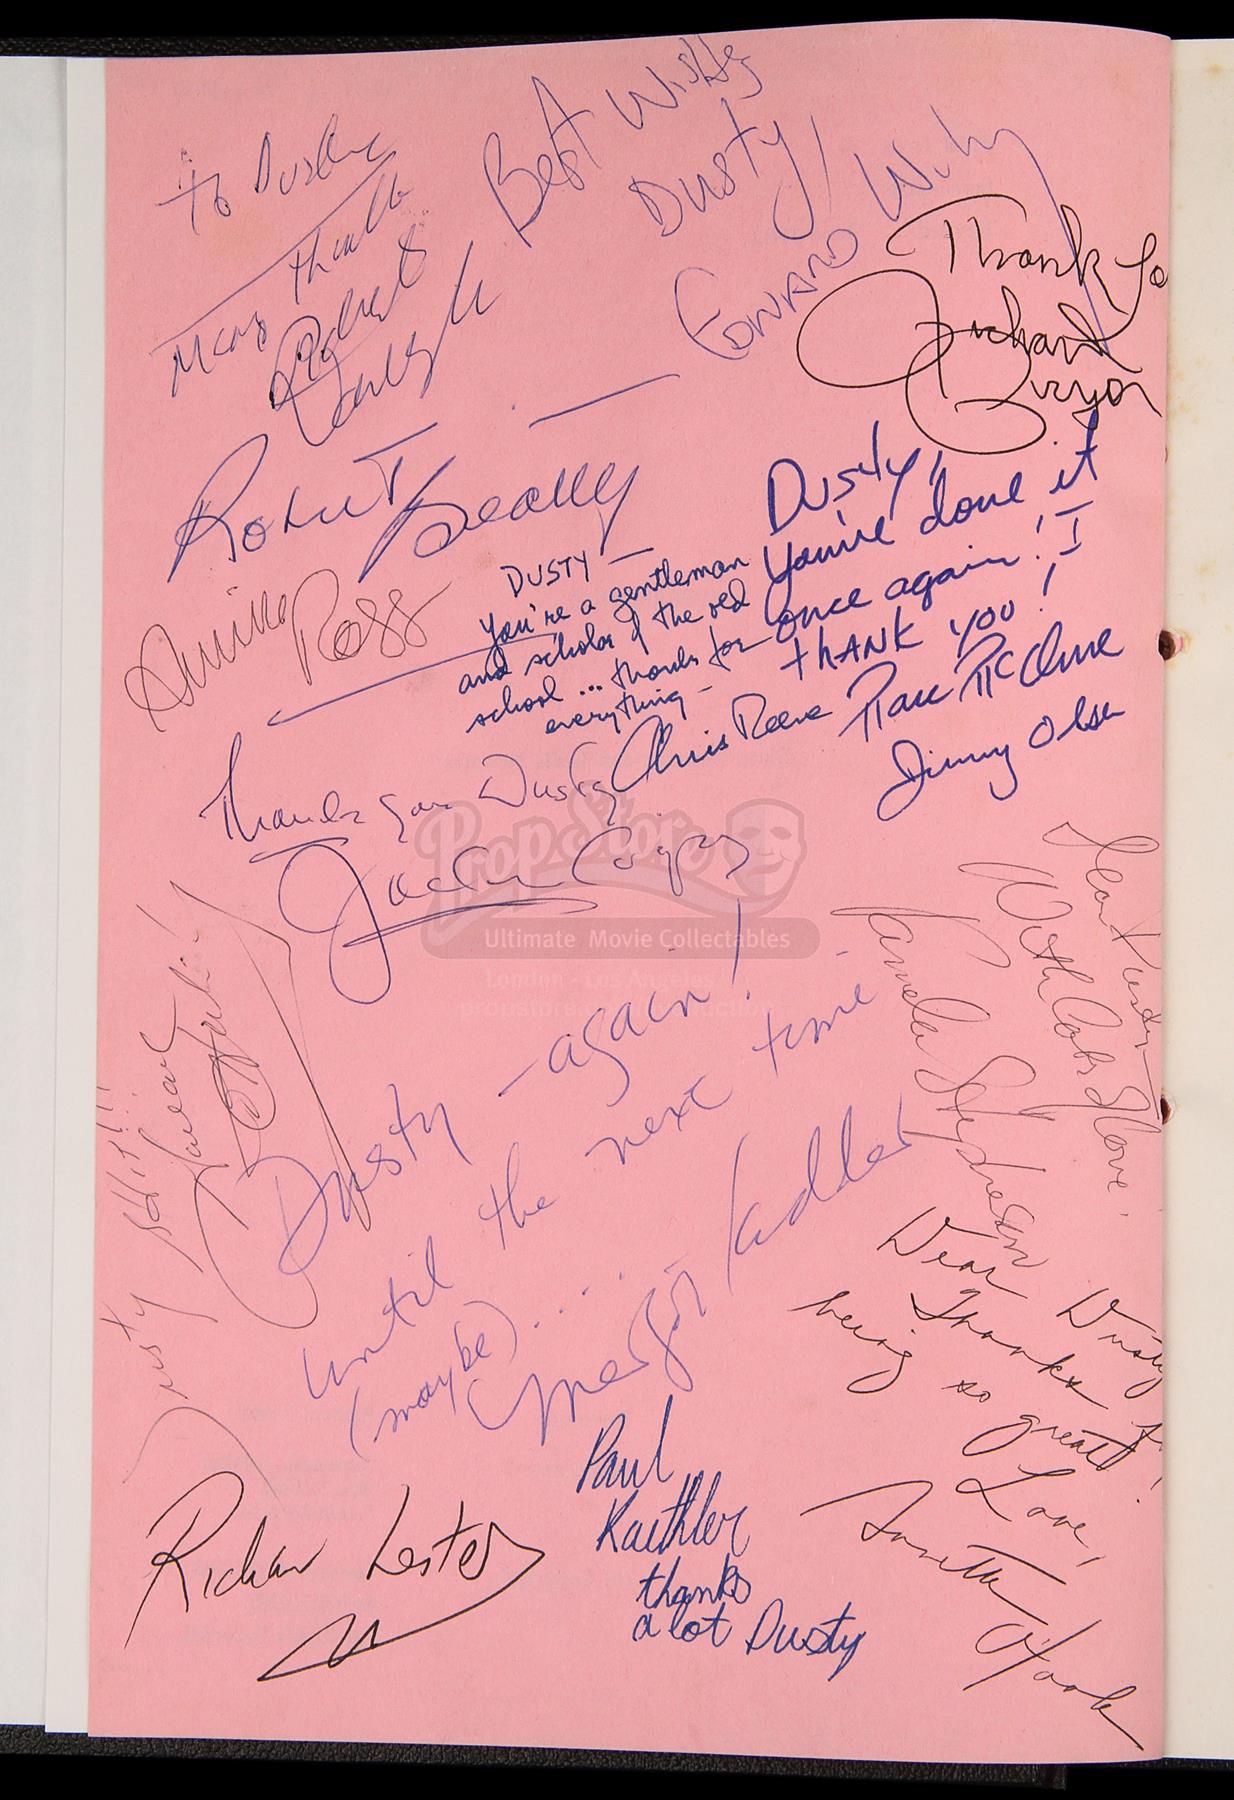 To Dusty
Many Thanks
Robert
Best Wishes
Dusty,
Edward Wiley
Thank Yo
Richard
Pryor
Robert Beatty
Annie Ross
DUSTY —
you're a gentleman
and scholar of the old
school ... thanks for
everything -
Chris Reeve
Dusty,
You've done it
once again! I
thANK you!
Marc McClure
Jimmy Olsen
Thank you Dusty
Jackie Cooper
PropStore
Ultimate Movie Collectables
London - Los Angeles
Dear Dusty
With lots of love,
Pamela Stephenson
Dusty - again!
until the next time
(maybe) ....
Margot Kidder
Dusty
Dear Dusty
Thanks f
being so great!
Love,
Annette O'Toole
Richard Lester
Paul
Kaethler
thanks
a lot Dusty